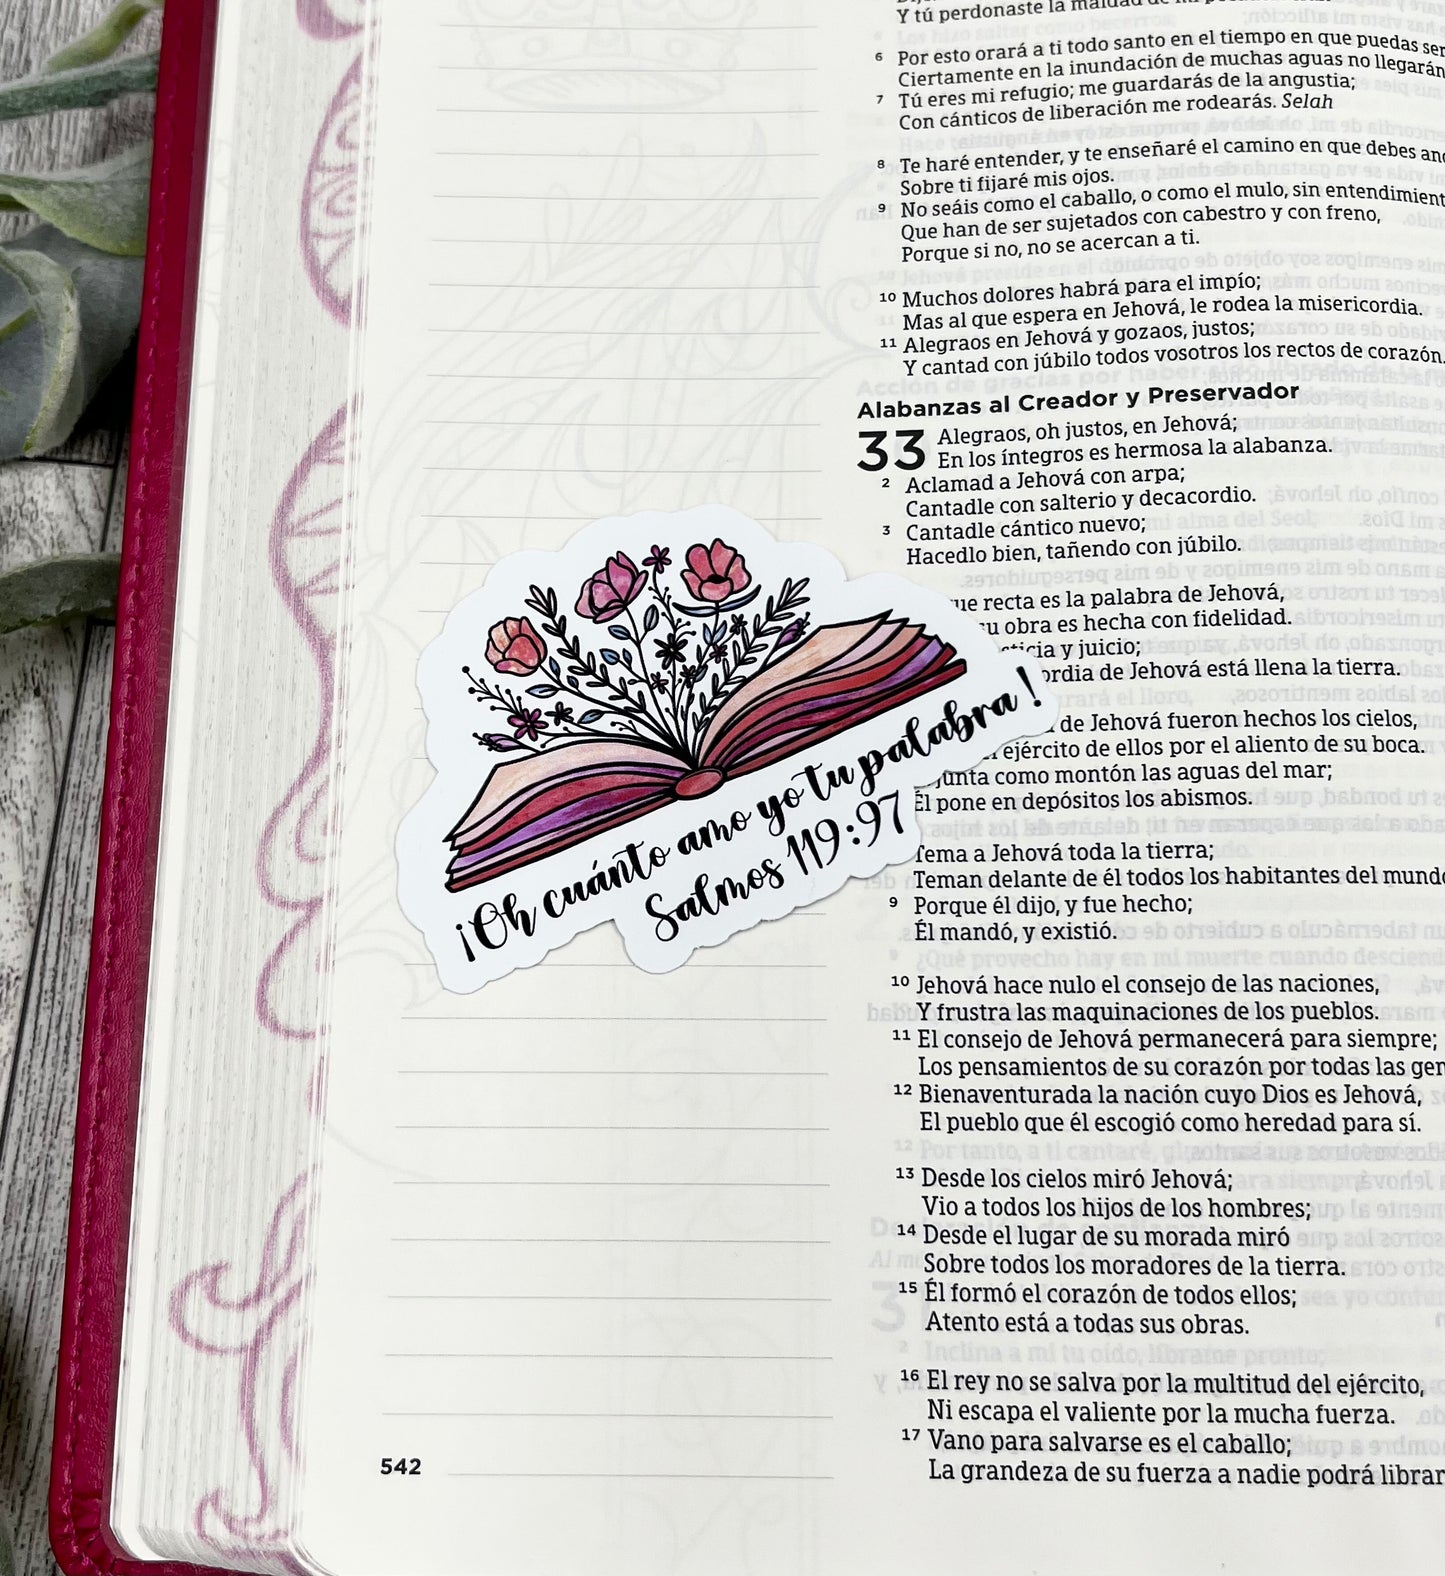 Y tú perdonaste la maldad de mi
6 Por esto orará a ti todo santo en el tiempo en que puedas ser
Ciertamente en la inundación de muchas aguas no llegarán
7 Tú eres mi refugio; me guardarás de la angustia;
Con cánticos de liberación me rodearás. Selah
8 Te haré entender, y te enseñaré el camino en que debes
Sobre ti fijaré mis ojos.
9 No seáis como el caballo, o como el mulo, sin
Que han de ser sujetados con cabestro y con freno,
Porque si no, no se acercan a ti.
10 Muchos dolores habrá para el impío;
Mas al que espera en Jehová, le rodea la misericordia.
11 Alegraos en Jehová y gozaos, justos;
Y cantad con júbilo todos vosotros los rectos de corazón.
Alabanzas al Creador y Preservador
33 Alegraos, oh justos, en Jehová;
En los íntegros es hermosa la alabanza.
2 Aclamad a Jehová con arpa;
Cantadle con salterio y decacordio.
3 Cantadle cántico nuevo;
Hacedlo bien, tañendo con júbilo.
recta es la palabra de Jehová,
su obra es hecha con fidelidad.
y juicio;
de Jehová está llena la tierra.
de Jehová fueron hechos los cielos,
ejército de ellos por el aliento de su boca.
junta como montón las aguas del mar;
Él pone en depósitos los abismos.
Tema a Jehová toda la tierra;
Teman delante de él todos los habitantes del
9 Porque él dijo, y fue hecho;
Él mandó, y existió.
10 Jehová hace nulo el consejo de las naciones,
Y frustra las maquinaciones de los pueblos.
11 El consejo de Jehová permanecerá para siempre;
Los pensamientos de su corazón por todas las
12 Bienaventurada la nación cuyo Dios es Jehová,
El pueblo que él escogió como heredad para sí.
13 Desde los cielos miró Jehová;
Vio a todos los hijos de los hombres;
14 Desde el lugar de su morada miró
Sobre todos los moradores de la tierra.
15 Él formó el corazón de todos ellos;
Atento está a todas sus obras.
16 El rey no se salva por la multitud del ejército,
Ni escapa el valiente por la mucha fuerza.
17 Vano para salvarse es el caballo;
La grandeza de su fuerza a nadie podrá librar
¡Oh cuánto amo yo tu palabra!
Salmos 119:97
542